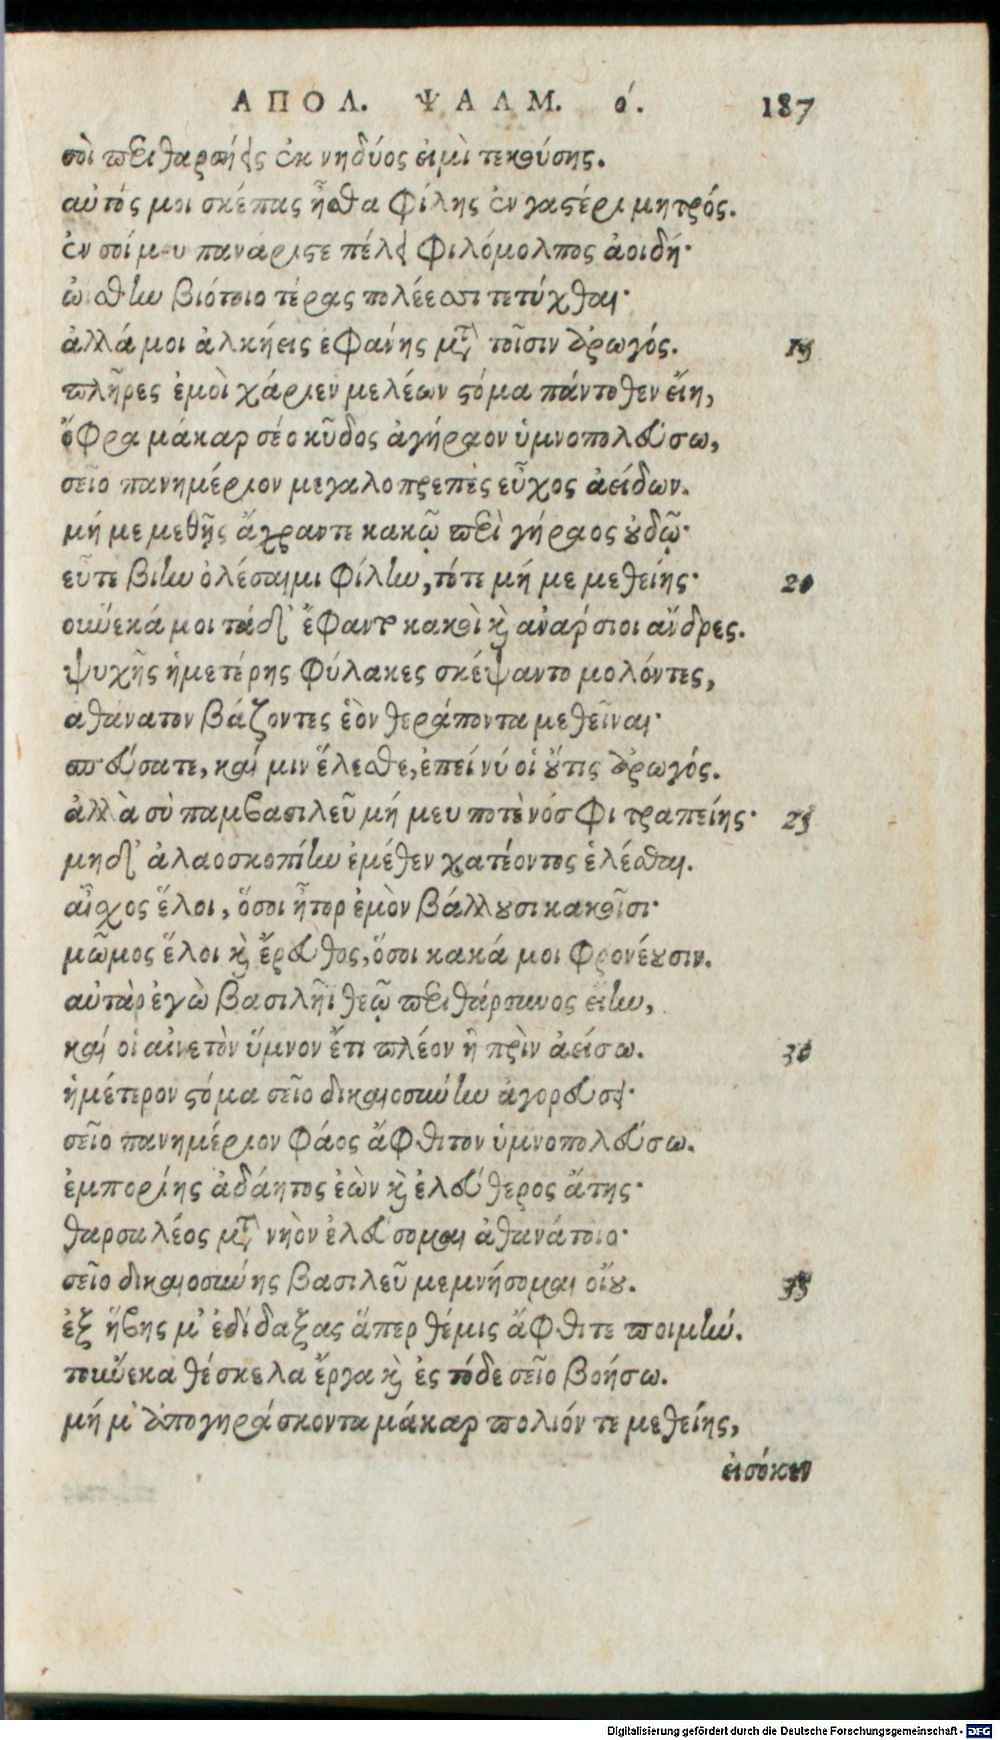 ΑΠΟΛ. ΨΑΛΜ. ό. 187
σοὶ περιθαρσήεις ἐκ νηδύος εἰμὶ τεκούσης.
αὐτός μοι σκέπας ἦσθα φίλης ἐν γαστέρι μητρός.
ἐν σοί μευ πανάριστε πέλει φιλόμολπος ἀοιδή·
ὠΐσθην βιότοιο τέρας πολέεσσι τετύχθαι·
ἀλλά μοι ἀλκήεις ἐφάνης μετὰ τοῖσιν ἀρωγός. 15
πλῆρες ἐμοὶ χάριεν μελέων στόμα πάντοθεν εἴη,
ὄφρα μάκαρ σέο κῦδος ἀγήραον ὑμνοπολεύσω,
σεῖο πανημέριον μεγαλοπρεπὲς εὖχος ἀείδων.
μή με μεθῇς ἄχραντε κακῷ περὶ γήραος οὐδῷ·
εὖτε βίην ὀλέσαιμι φίλην, τότε μή με μεθείης· 20
οὕνεκά μοι τάδ' ἔφαντο κακοὶ καὶ ἀνάρσιοι ἄνδρες.
ψυχῆς ἡμετέρης φύλακες σκέψαντο μολόντες,
ἀθάνατον βάζοντες ἑὸν θεράποντα μεθεῖναι·
σπεύσατε, καί μιν ἕλεσθε, ἐπεί νύ οἱ οὔτις ἀρωγός.
ἀλλὰ σὺ παμβασιλεῦ μή μευ ποτὲ νόσφι τραπείης· 25
μηδ' ἀλαοσκοπίην ἐμέθεν χατέοντος ἑλέσθαι.
αἶσχος ἕλοι, ὅσοι ἦτορ ἐμὸν βάλλουσι κακοῖσι·
μῶμος ἕλοι καὶ ἔρευθος, ὅσοι κακά μοι φρονέουσιν.
αὐτὰρ ἐγὼ βασιλῆϊ θεῷ περιθάρσυνος εἴην,
καί οἱ αἰνετὸν ὕμνον ἔτι πλέον ἢ πρὶν ἀείσω. 30
ἡμέτερον στόμα σεῖο δικαιοσύνην ἀγορεύσει·
σεῖο πανημέριον φάος ἄφθιτον ὑμνοπολεύσω.
ἐμπορίης ἀδάητος ἐὼν καὶ ἐλεύθερος ἄτης·
θαρσαλέος μετὰ νηὸν ἐλεύσομαι ἀθανάτοιο·
σεῖο δικαιοσύνης βασιλεῦ μεμνήσομαι οἴου. 35
ἐξ ἥβης μ' ἐδίδαξας ἅπερ θέμις ἄφθιτε ποιμήν.
τοὔνεκα θέσκελα ἔργα καὶ ἐς τόδε σεῖο βοήσω.
μή μ' ἀπογηράσκοντα μάκαρ πολιόν τε μεθείης,
εἰσόκεν
Digitalisierung gefördert durch die Deutsche Forschungsgemeinschaft - DFG